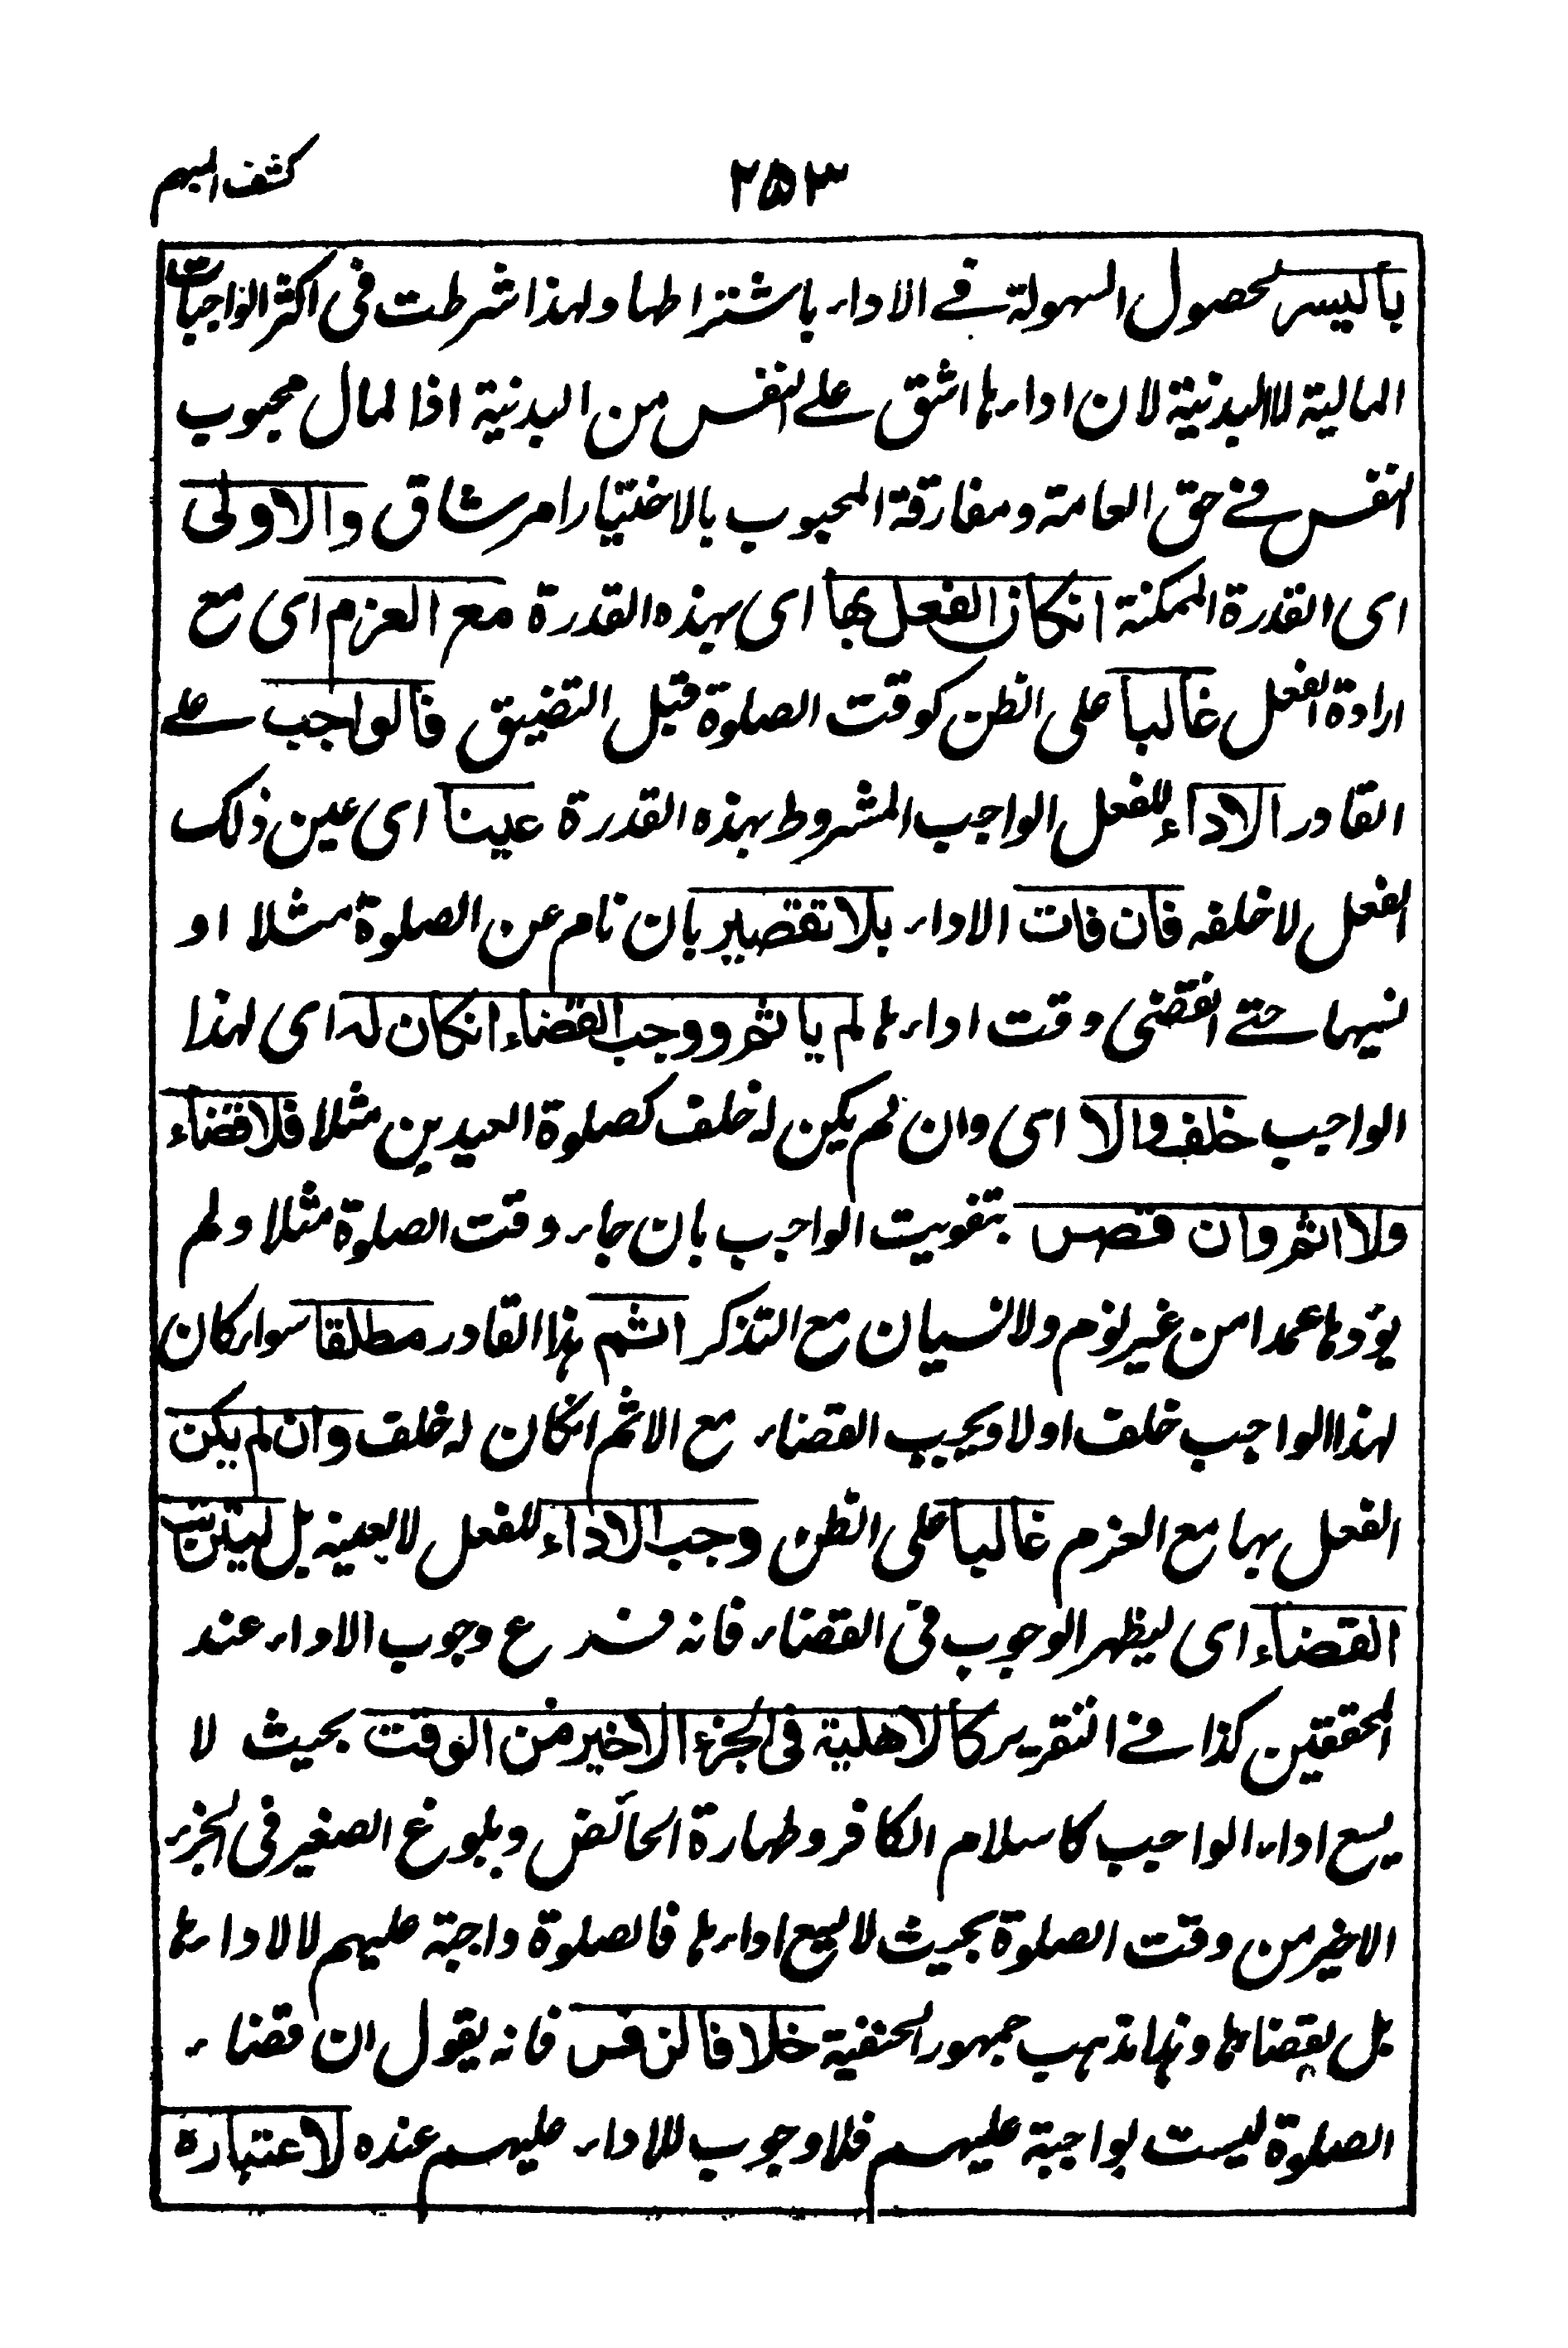 كشف المبهم
٢٥٣
باليسر لحصول السهولة في الاداء باشتراطها ولهذا شرطت في اكثر الواجبات
المالية لا البدنية لان اداءها اشق على النفس من البدنية اذا لمال محبوب
النفس في حق العامة ومفارقة المحبوب بالاختيار امر شاق والاولى
اى القدرة الممكنة انكان الفعل بها اى بهذه القدرة مع العزم اى مع
ارادة الفعل غالبا على الظن كوقت الصلوة قبل التضيق فالواجب على
القادر الاداء للفعل الواجب المشروط بهذه القدرة عينا اى عين ذلك
الفعل لا خلفه فان فات الاداء بلا تقصير بان نام عن الصلوة مثلا او
نسيها حتى انقضى وقت اداءها لم ياثم ووجب القضاء انكان له اى لهذا
الواجب خلف والا اى وان لم يكن له خلف كصلوة العيدين مثلا فلا قضاء
ولا اثم وان قصر بتفويت الواجب بان جاء وقت الصلوة مثلا ولم
يؤدها عمدا من غير نوم ولا نسيان مع التذكر اثم هذا القادر مطلقا سواء كان
لهذا الواجب خلف اولا ويجب القضاء مع الاثم انكان له خلف وان لم يكن
الفعل بها مع العزم غالبا على الظن وجب الاداء للفعل لا بعينه بل ليترتب
القضاء اى ليظهر الوجوب في القضاء فانه فرع وجوب الاداء عند
المحققين كذا في التقرير كالاهلية في الجزء الاخير من الوقت بحيث لا
يسع اداء الواجب كاسلام الكافر وطهارة الحائض وبلوغ الصغير في الجزء
الاخير من وقت الصلوة بحيث لا يسع اداءها فالصلوة واجبة عليهم لا لاداءها
بل لقضاءها وهذا مذهب جمهور الحنفية خلافا لزفر فانه يقول ان قضاء
الصلوة ليست بواجبة عليهم فلا وجوب للاداء عليهم عنده لاعتباره